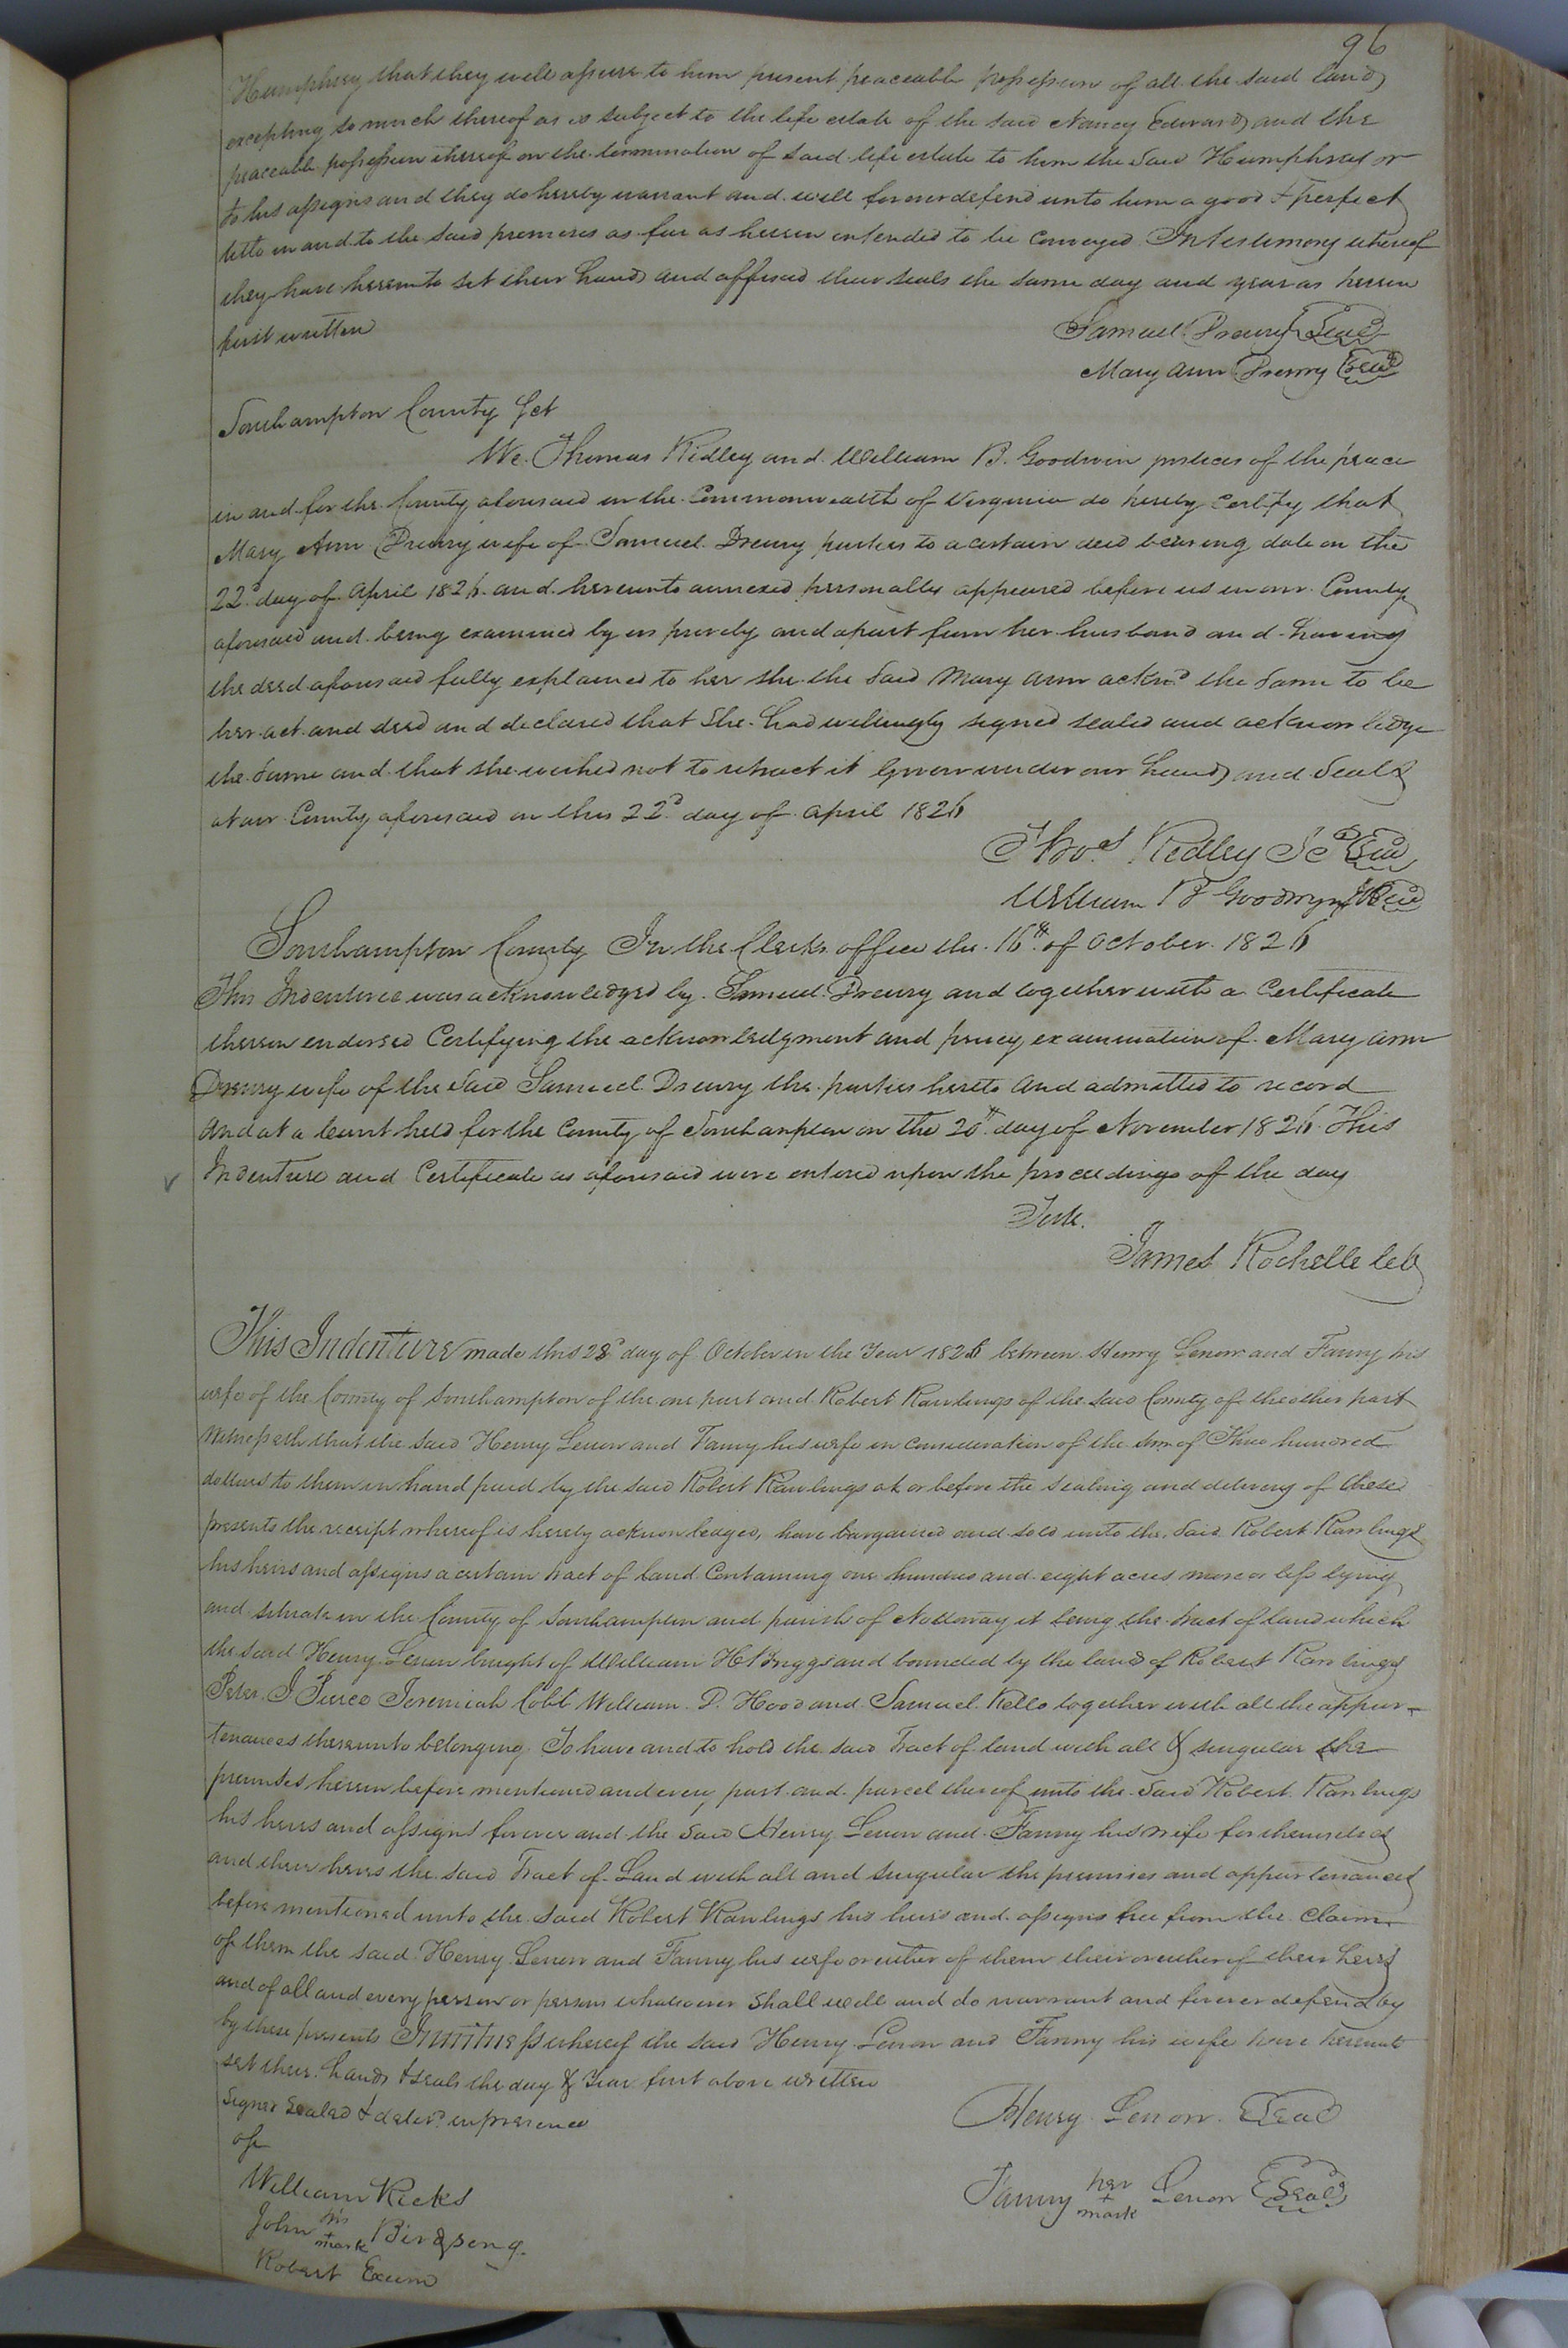 96
Humphrey that they will assure to him present peaceable possession of all the said land
excepting so much thereof as is subject to the life estate of the said Nancy Edwards and the
peaceable possession thereof on the termination of said life estate to him the said Humphrey or
to his assigns and they do hereby warrant and will forever defend unto him a good & perfect
title in and to the said premises as far as herein intended to be conveyed In testimony whereof
they have hereunto set their hands and affixed their seals the same day and year as herein
first written
Samuel Drewry Seal
Mary Ann Drewry Seal
Southampton County Sct
We Thomas Ridley and William B. Goodwin justices of the peace
in and for the County aforesaid in the Commonwealth of Virginia do hereby Certify that
Mary Ann Drewry wife of Samuel Drewry parties to a certain deed bearing date on the
22d day of April 1826 and hereunto annexed personally appeared before us in our County
aforesaid and being examined by us privily and apart from her husband and having
the deed aforesaid fully explained to her she the said Mary Ann acknd the same to be
her act and deed and declared that she had willingly signed sealed and acknowledge
the same and that she wished not to retract it Given under our hands and Seals
at our County aforesaid on this 22d day of April 1826
Thos Ridley Seal
William B Goodwyn Seal
Southampton County In the Clerks office the 16th of October 1826
This Indenture was acknowledged by Samuel Drewry and together with a Certificate
thereon endorsed Certifying the acknowledgment and privy examination of Mary Ann
Drewry wife of the said Samuel Drewry the parties hereto and admitted to record
And at a Court held for the County of Southampton on the 20th day of November 1826 This
Indenture and Certificate as aforesaid were entered upon the proceedings of the day
Teste.
James Rochelle
This Indenture made this 28th day of October in the Year 1826 between Henry Lenow and Fanny his
wife of the County of Southampton of the one part and Robert Rawlings of the said County of the other part
Witnesseth that the said Henry Lenow and Fanny his wife in consideration of the sum of Three hundred
dollars to them in hand paid by the said Robert Rawlings at or before the sealing and delivery of these
presents the receipt whereof is hereby acknowledged, have bargained and sold unto the said Robert Rawlings
his heirs and assigns a certain tract of land Containing one hundred and eight acres more or less lying
and situate in the County of Southampton and parish of Nottoway it being the tract of land which
the said Henry Lenow bought of William H Briggs and bounded by the lands of Robert Rawlings
Peter J Pierce Jeremiah Cobb William D. Hood and Samuel Kello together with all the appur-
tenances thereunto belonging To have and to hold the said Tract of land with all & singular the
premises herein before mentioned and every part and parcel thereof unto the said Robert Rawlings
his heirs and assigns forever and the said Henry Lenow and Fanny his wife for themselves
and their heirs the said Tract of Land with all and singular the premises and appurtenances
before mentioned unto the said Robert Rawlings his heirs and assigns free from the Claim
of them the said Henry Lenow and Fanny his wife or either of them their or either of their heirs
and of all and every person or persons whatsoever shall will and do warrant and forever defend by
by these presents In witness whereof the said Henry Lenow and Fanny his wife have hereunto
set their hands & seals the day & year first above written
Signed Sealed & delivd in presence
of
Henry Lenow Seal
William Ricks
Fanny her + mark Lenow Seal
John his + mark Birdsong
Robert Exum